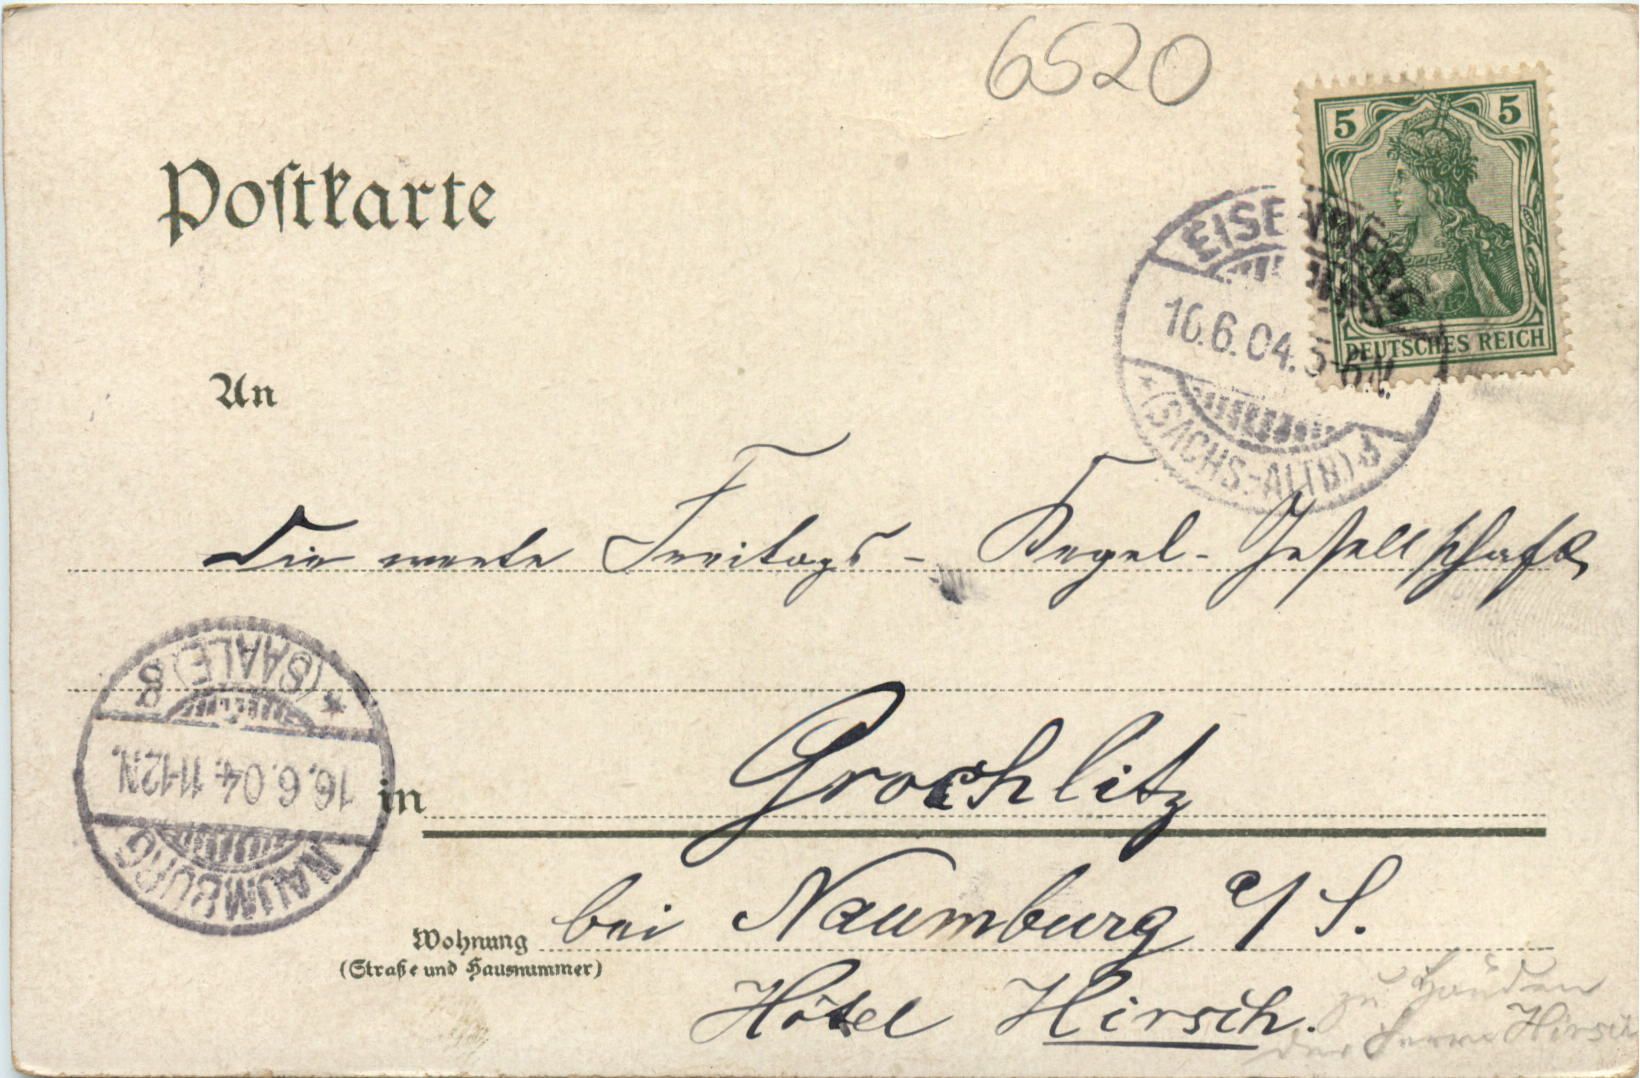 6520
5 5
DEUTSCHES REICH
Postkarte
EISENBERG
16.6.04. 5-6N.
* (SACHS-ALTB)
An
Die werte Freitags - Kegel - Gesellschaft
NAUMBURG
16.6.04. 11-12N.
* (SAALE) 8
in Grochlitz
bei Naumburg a/S.
Wohnung
(Straße und Hausnummer)
Hôtel Hirsch.
zu Händen
des Herrn Hirsch